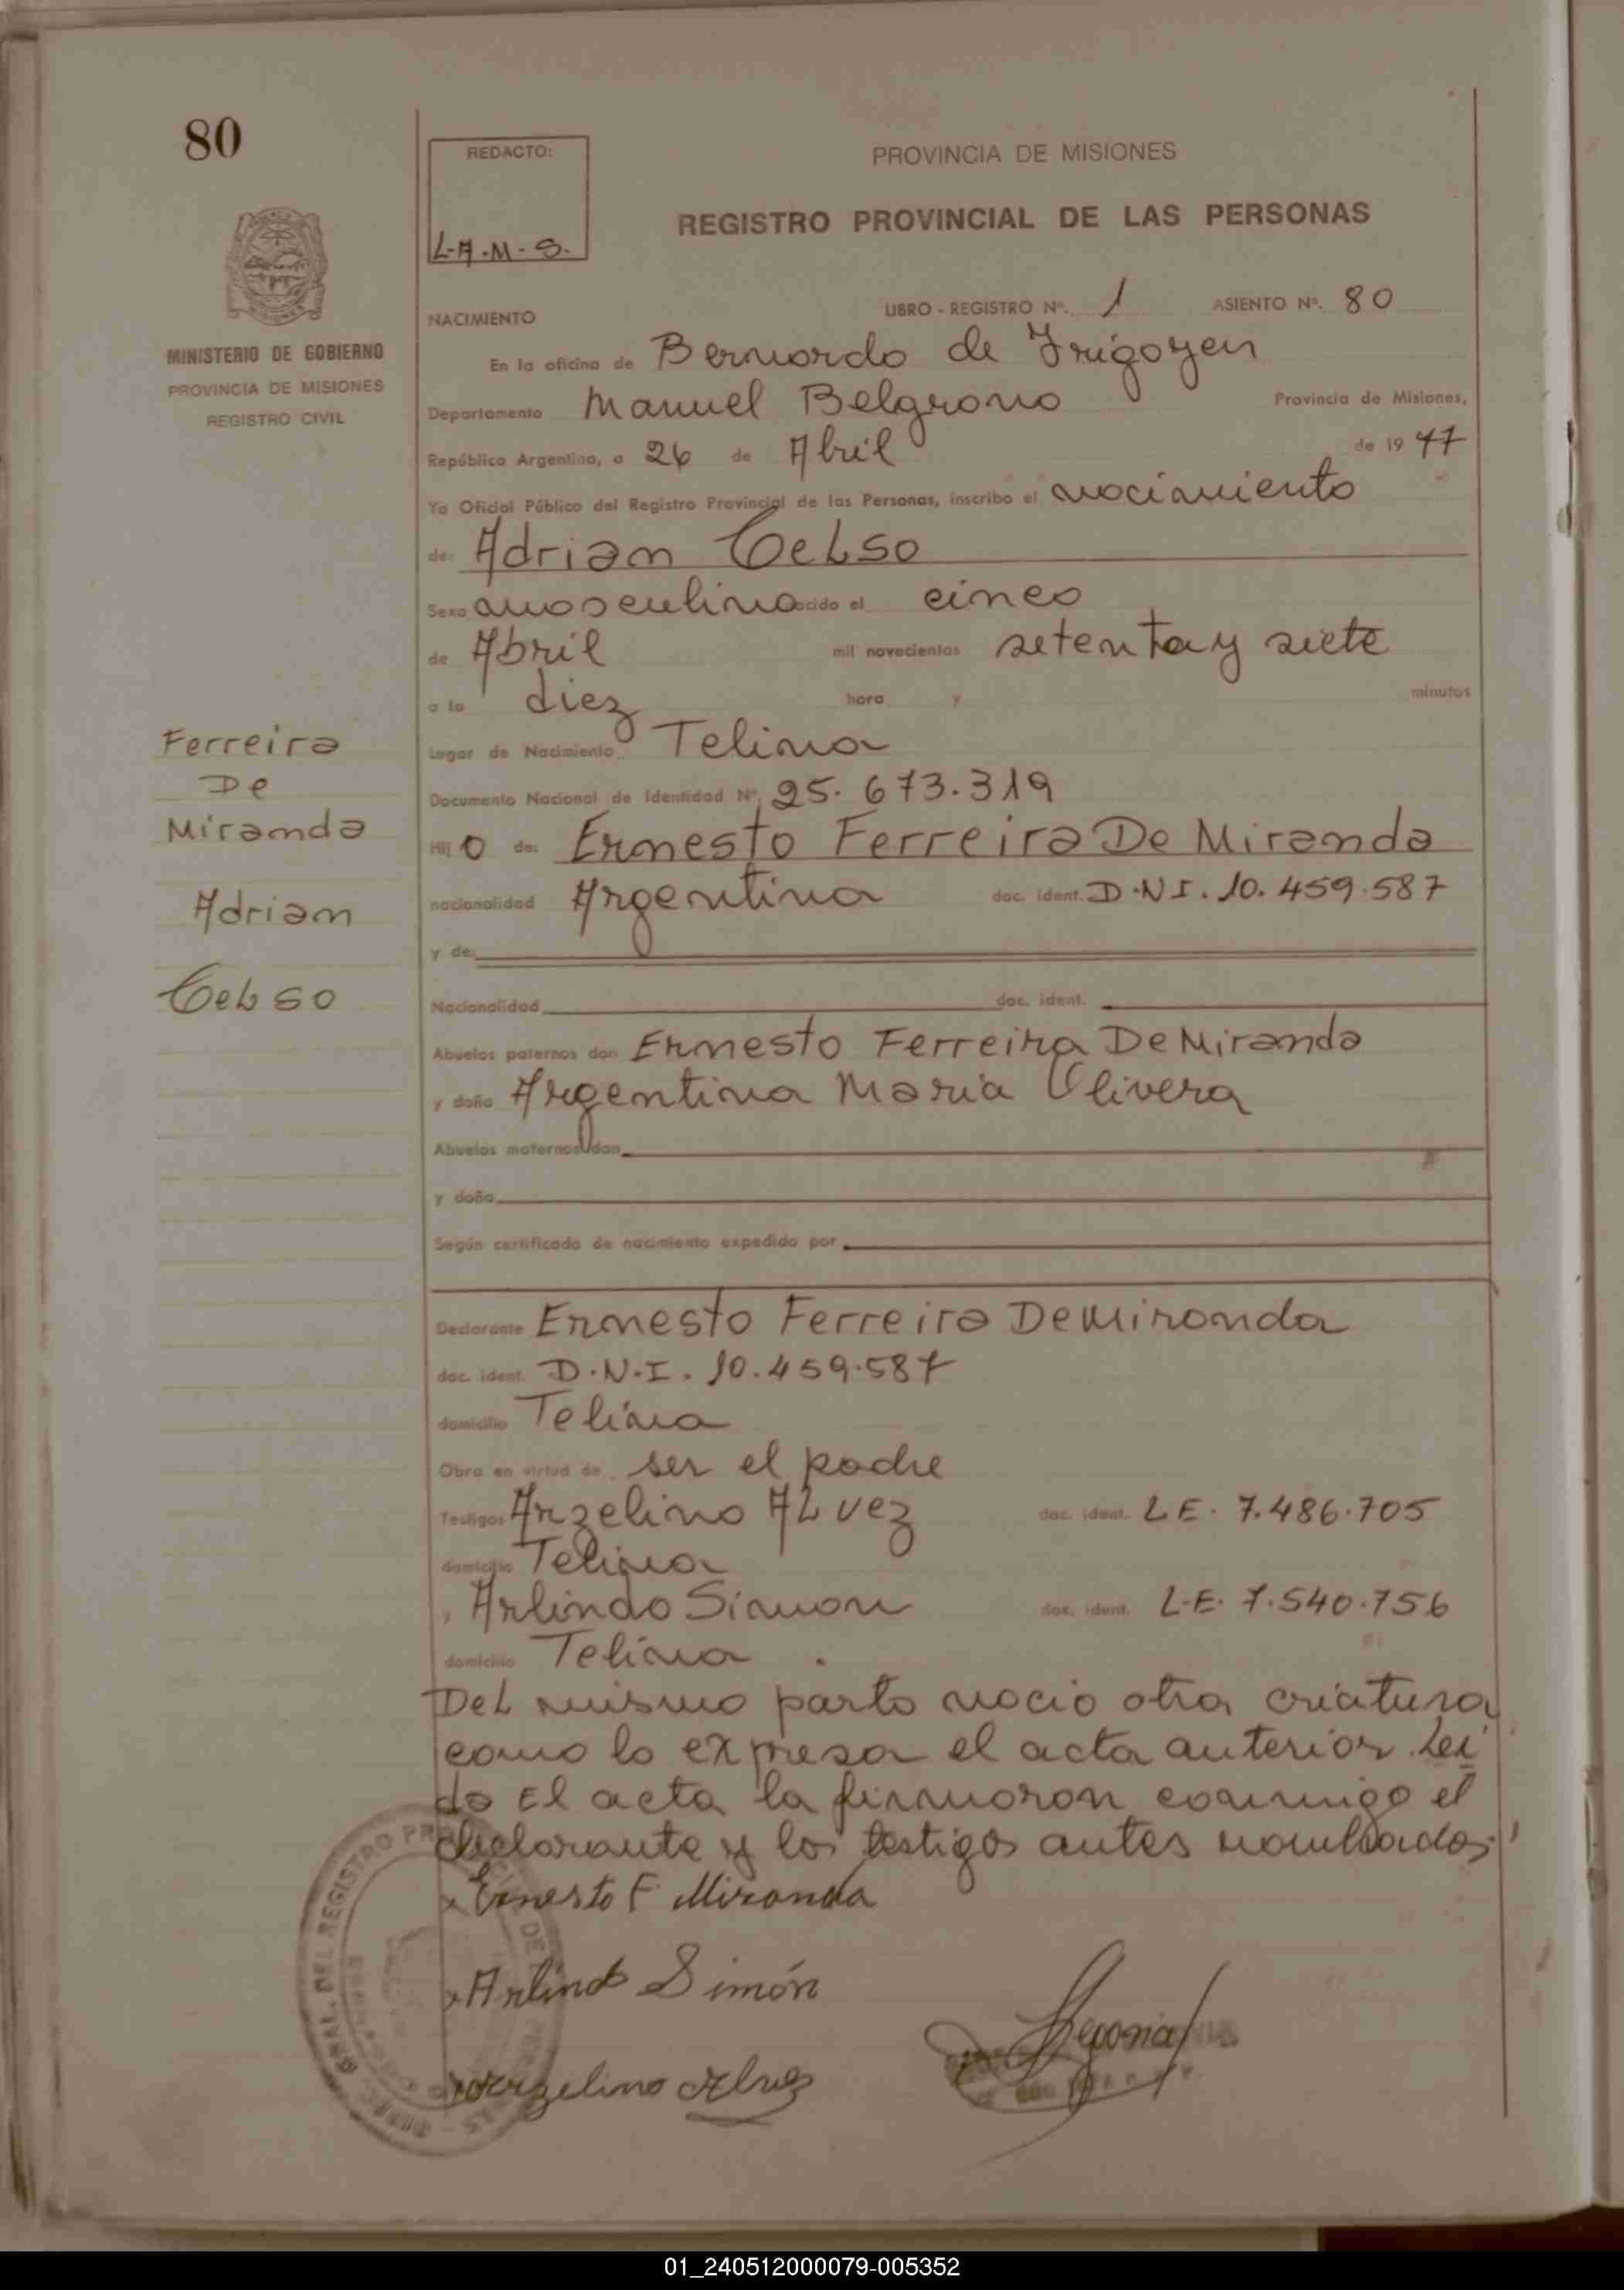 80
REDACTO:
L.A.M.S.
PROVINCIA DE MISIONES
REGISTRO PROVINCIAL DE LAS PERSONAS
MINISTERIO DE GOBIERNO
PROVINCIA DE MISIONES
REGISTRO CIVIL
NACIMIENTO LIBRO - REGISTRO Nº. 1 ASIENTO Nº. 80
En la oficina de Bernardo de Irigoyen
Departamento Manuel Belgrano Provincia de Misiones,
República Argentina, a 26 de Abril de 19 77
Yo Oficial Público del Registro Provincial de las Personas, inscribo el nacimiento
de: Adrian Celso
Sexo masculino nacido el cinco
de Abril mil novecientos setenta y siete
a la diez hora y minutos
Lugar de Nacimiento Telina
Documento Nacional de Identidad Nº. 25.673.319
Hijo de: Ernesto Ferreira De Miranda
nacionalidad Argentina doc. ident. D.N.I. 10.459.587
y de:
Nacionalidad doc. ident.
Abuelos paternos don Ernesto Ferreira De Miranda
y doña Argentina Maria Olivera
Abuelos maternos don
y doña
Según certificado de nacimiento expedido por
Ferreira
De
Miranda
Adrian
Celso
Declarante Ernesto Ferreira De Miranda
doc. ident. D.N.I. 10.459.587
domicilio Telina
Obra en virtud de ser el padre
Testigos Arzelino Alvez doc. ident. L.E. 7.486.705
domicilio Telina
, Arlindo Simon doc. ident. L.E. 7.540.756
domicilio Telina.
Del mismo parto nacio otra criatura
como lo expresa el acta anterior. Lei
do El acta la firmaron conmigo el
declarante y los testigos antes nombrados.
x Ernesto F Miranda
x Arlindo Simón
Arzelino Alvez
01_240512000079-005352